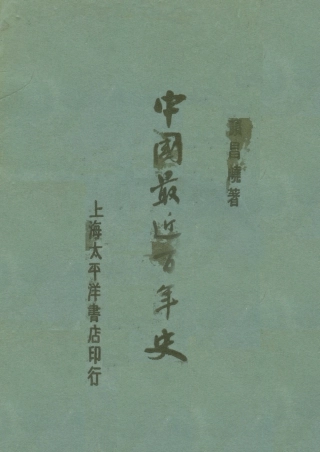 顏昌嶢著
中國最近百年史
上海太平洋書店印行